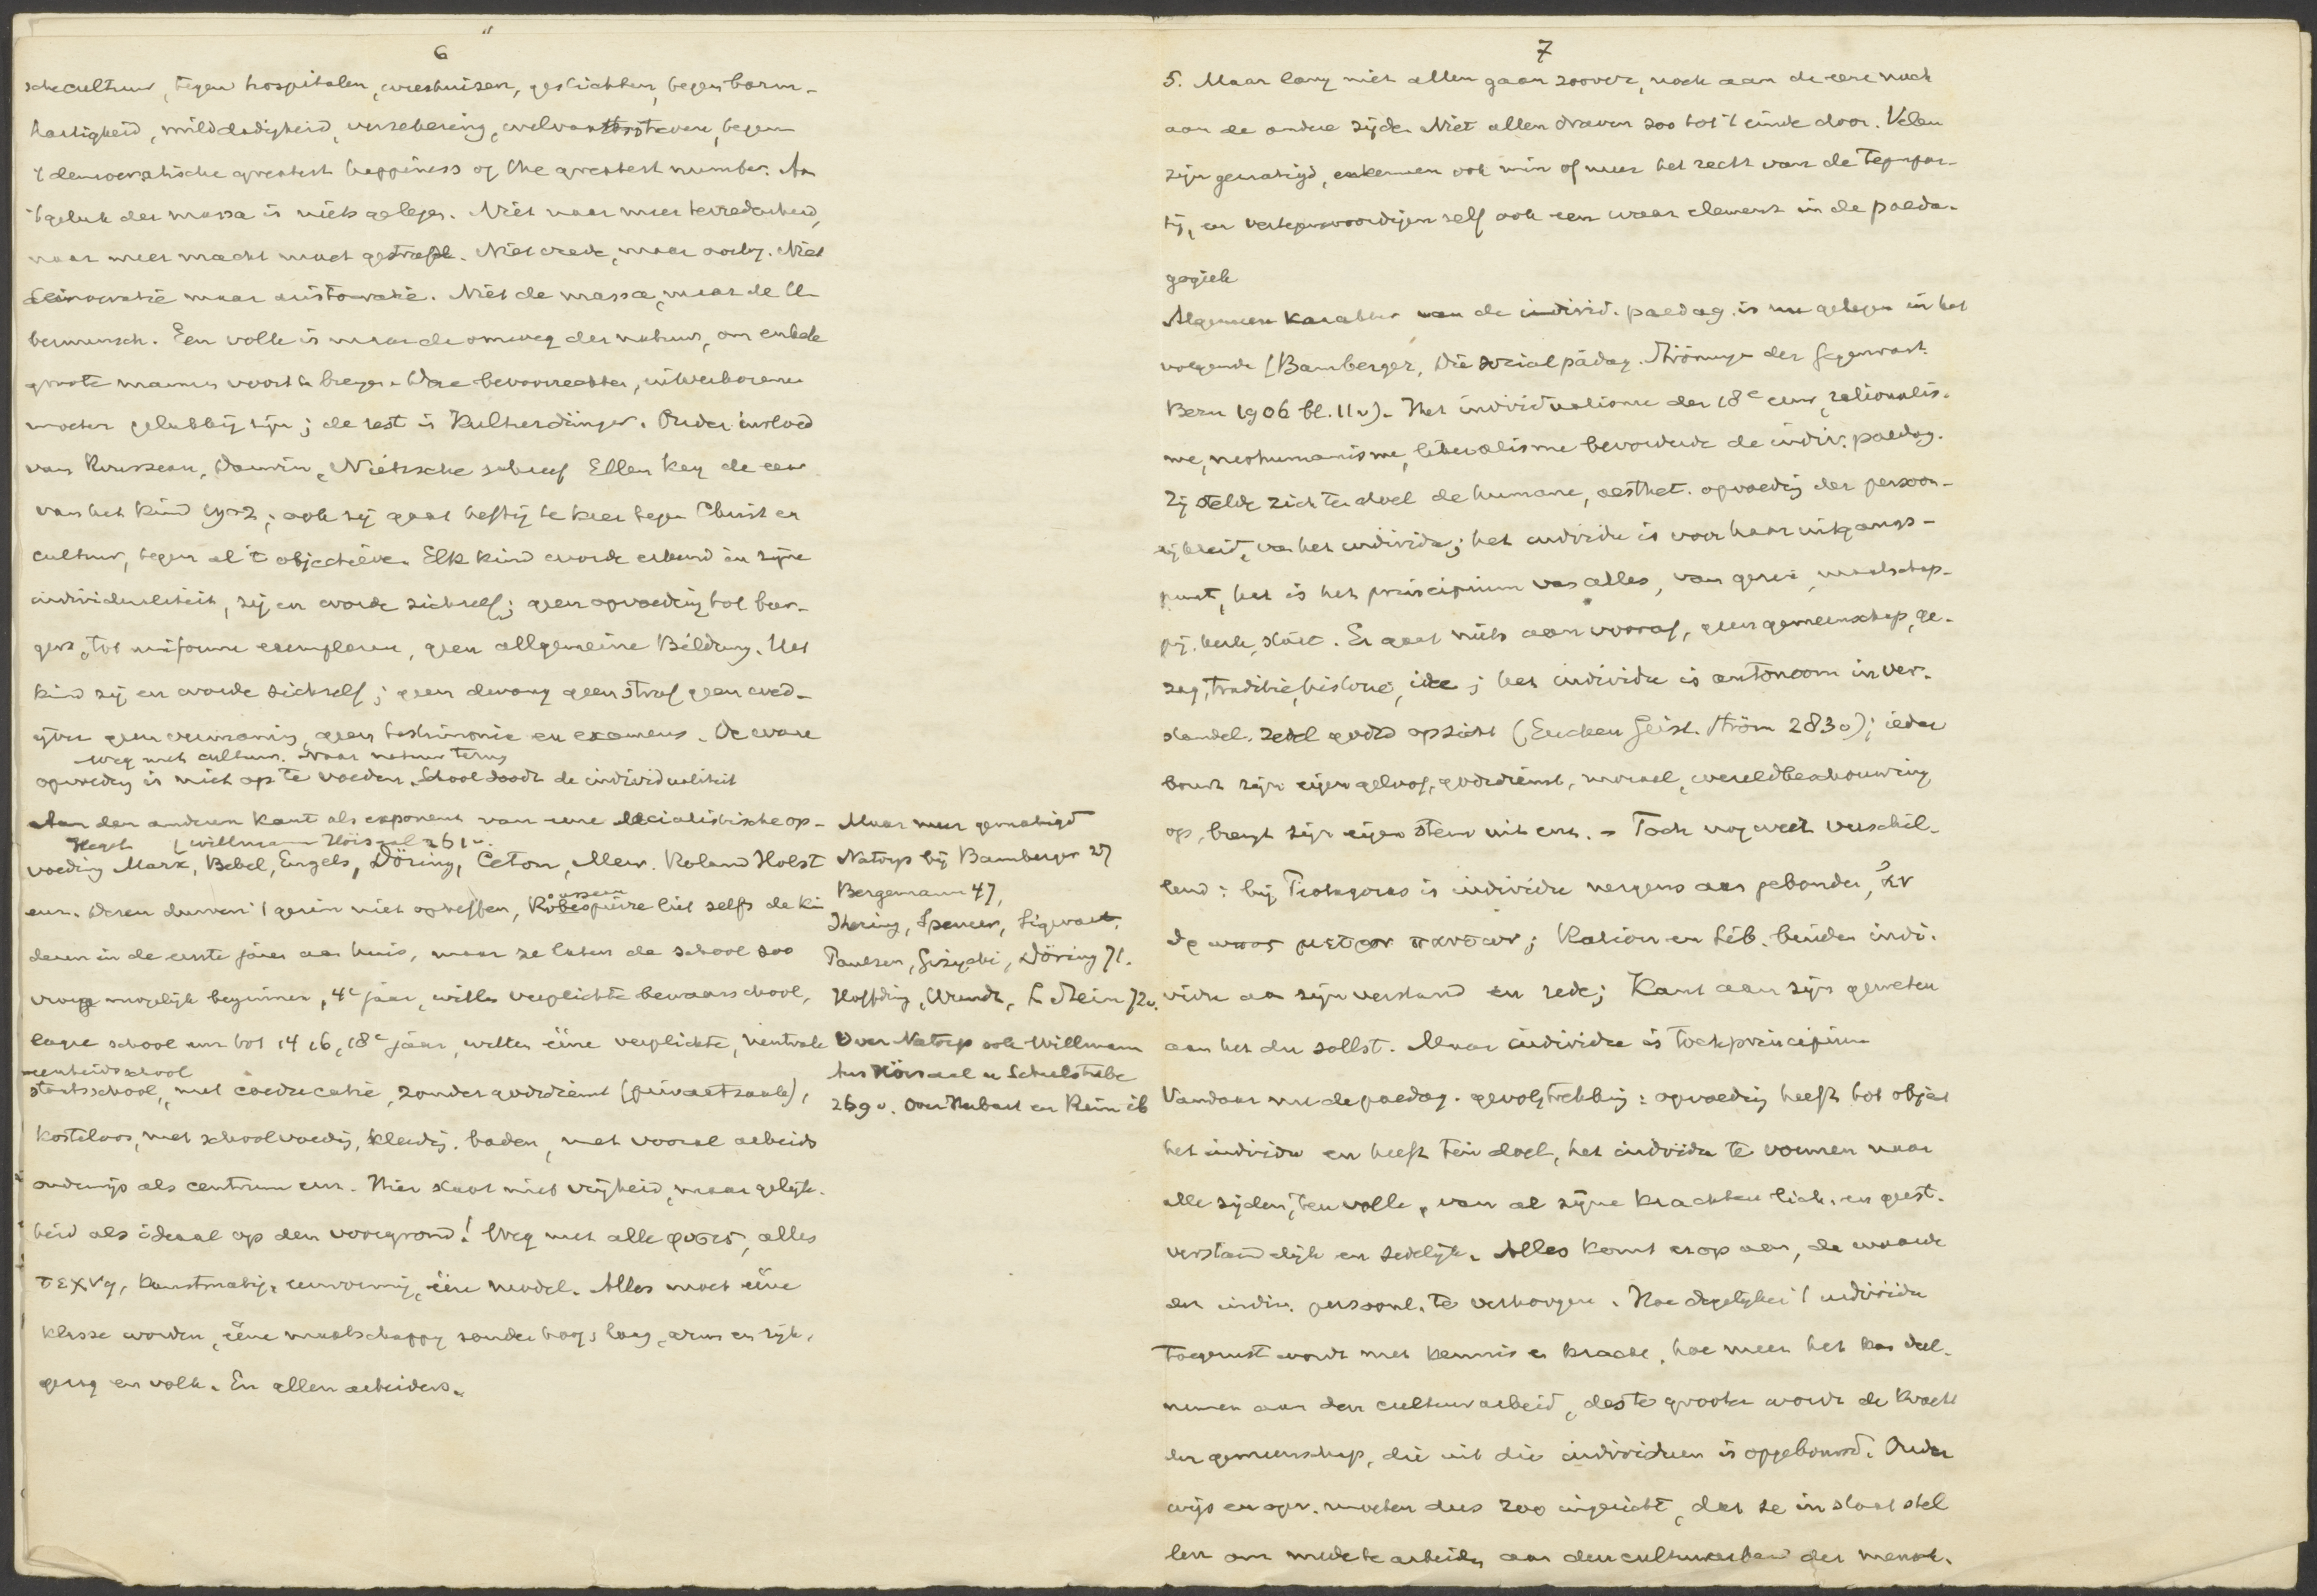 6
sche cultuur, tegen hospitalen, weeshuizen, gestichten, tegen barm-
hartigheid, milddadigheid, verzekering, tegen
't democratische greatest happiness of the greatest number. Aan
't geluk der massa is niets gelegen. Niet naar meer tevredenheid,
naar meer macht moet gestreefd. Niet vrede, maar oorlog. Niet
democratie maar aristocratie. Niet de massa, maar de Ue-
bermensch. Een volk is maar de omweg der natuur, om enkele
groote mannen voort te brengen. Deze bevoorrechten, uitverkorenen
moeten gelukkig zijn; de rest is Kulturdünger. Onder invloed
van Rousseau, Darwin, Nietzsche schreef Ellen Key de eeuw
van het kind 1902; ook zij gaat heftig te keer tegen Christ. en
cultuur, tegen al 't objectieve. Elk kind worde erkend in zijne
individualiteit, zij en worde zichzelf; geen opvoeding tot bur-
gers, tot uniforme exemplaren, geen allgemeine Bildung. Het
kind zij en worde zichzelf; geen dwang geen straf geen wed-
ijver geen vermaning, geen testimonia en examens. De ware
Weg met cultuur. Naar natuur terug
opvoeding is niet op te voeden. School doodt de individualiteit
Aan den anderen kant als exponent van eene socialistische op-
Hegel (Willmann Hörsaal 261 v.
voeding Marx, Bebel, Engels, Döring, Ceton, Mevr. Roland Holst
enz. Dezen durven 't gezin niet opheffen, Rousseau liet zelfs de kin
deren in de eerste jaren aan huis, maar ze laten de school zoo
vroeg mogelijk beginnen, 4e jaar, willen verplichte bewaarschool,
lagere school enz tot 14 16, 18e jaar, willen ééne verplichte, neutrale
eenheidsschool
staatsschool, met coeducatie, zonder godsdienst (privaatzaak),
kosteloos, met schoolvoeding, kleeding, baden, met vooral arbeids
onderwijs als centrum enz. Hier staat niet vrijheid, maar gelijk-
heid als ideaal op den voorgrond! Weg met alle φυσις, alles
τεχνη, kunstmatig, eenvormig, één model. Alles moet ééne
klasse worden, ééne maatschappij zonder hoog, laag, arm en rijk,
geest en volk. En allen arbeiders.
Maar meer gematigd
Natorp bij Bamberger 27
Bergemann 47,
Ihering, Spencer, Sigwart,
Paulsen, Gizycki, Döring 71.
Höffding, Wundt, L. Stein 72v.
Over Natorp ook Willmann
Aus Hörsaal u Schulstube
269 v. Over Herbart en Rein ib
7
5. Maar lang niet allen gaan zoover, noch aan de eene noch
aan de andere zijde. Niet allen draven zoo tot 't einde door. Velen
zijn gematigd, erkennen ook min of meer het recht van de tegenpar-
tij, en vertegenwoordigen zelf ook een waar element in de paeda-
gogiek
Algemeen karakter van de individ. paedag. is nu gelegen in het
volgende (Bamberger, Die socialpädag. Strömungen der Gegenwart
Bern 1906 bl. 11 v). Het individualisme der 18e eeuw, rationalis-
me, neohumanisme, liberalisme bevorderde de indiv. paedag.
Zij stelde zich ten doel de humane, aesthet. opvoeding der persoon-
lijkheid, van het individu; het individu is voor haar uitgangs-
punt, het is het principium van alles, van gezin, maatschap-
pij, kerk, staat. Er gaat niets aan vooraf, geen gemeenschap, ge-
zag, traditie, historie, idee; het individu is autonoom in ver-
standel. zedel godsd opzicht (Eucken Geist. Ström 283v); ieder
bouwt zijn eigen geloof, godsdienst, moraal, wereldbeschouwing
op, brengt zijn eigen stem uit enz. - Toch nog weer verschil-
lend: bij Protagoras is individu nergens aan gebonden, ἀν
θρωπος μετρον παντων; Ration en Lib. binden indi-
vidu aan zijn verstand en rede; Kant aan zijn geweten
aan het du sollst. Maar individu is toch principium
Vandaar nu de paedag. gevolgtrekking: opvoeding heeft tot object
het individu en heeft tein doel, het individu te vormen naar
alle zijden, ten volle, van al zijne krachten lich. en geest.
verstandelijk en zedelijk. Alles komt erop aan, de waarde
der indiv. persoonl. te verhoogen. Hoe degelijker 't individu
toegerust wordt met kennis en kracht, hoe meer het kan deel-
nemen aan den cultuurarbeid, des te grooter wordt de kracht
der gemeenschap, die uit die individuen is opgebouwd. Onder
wijs en opv. moeten dus zoo ingericht, dat ze in staat stel
len om mede te arbeiden aan den cultuurarbeid der mensch.